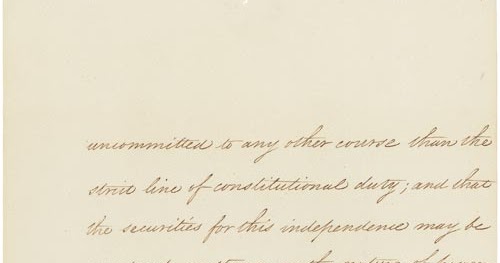 uncommitted to any other course than the
strict line of constitutional duty; and that
the securities for this independence may be